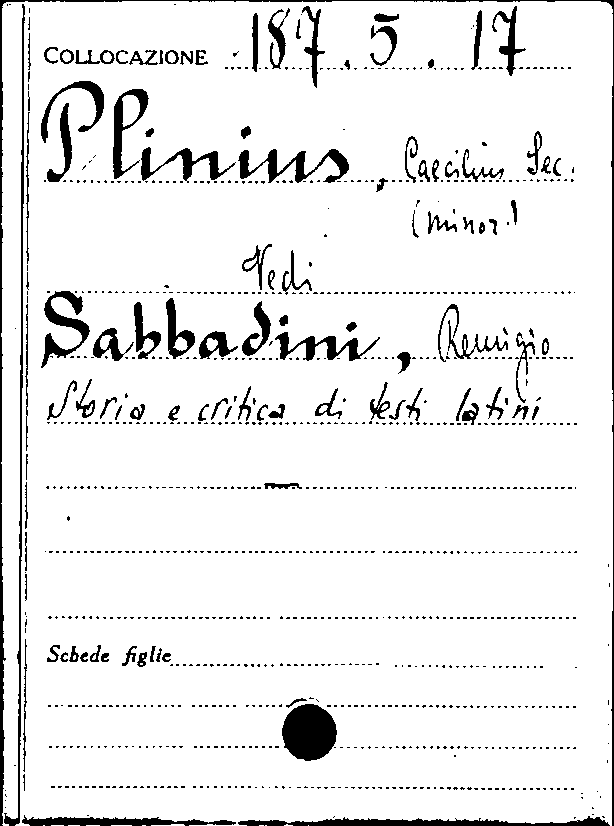 COLLOCAZIONE 187.5.17
Plinius, Caecilius Sec.
(minor)
Vedi
Sabbadini, Remigio
Storia e critica di testi latini
Schede figlie